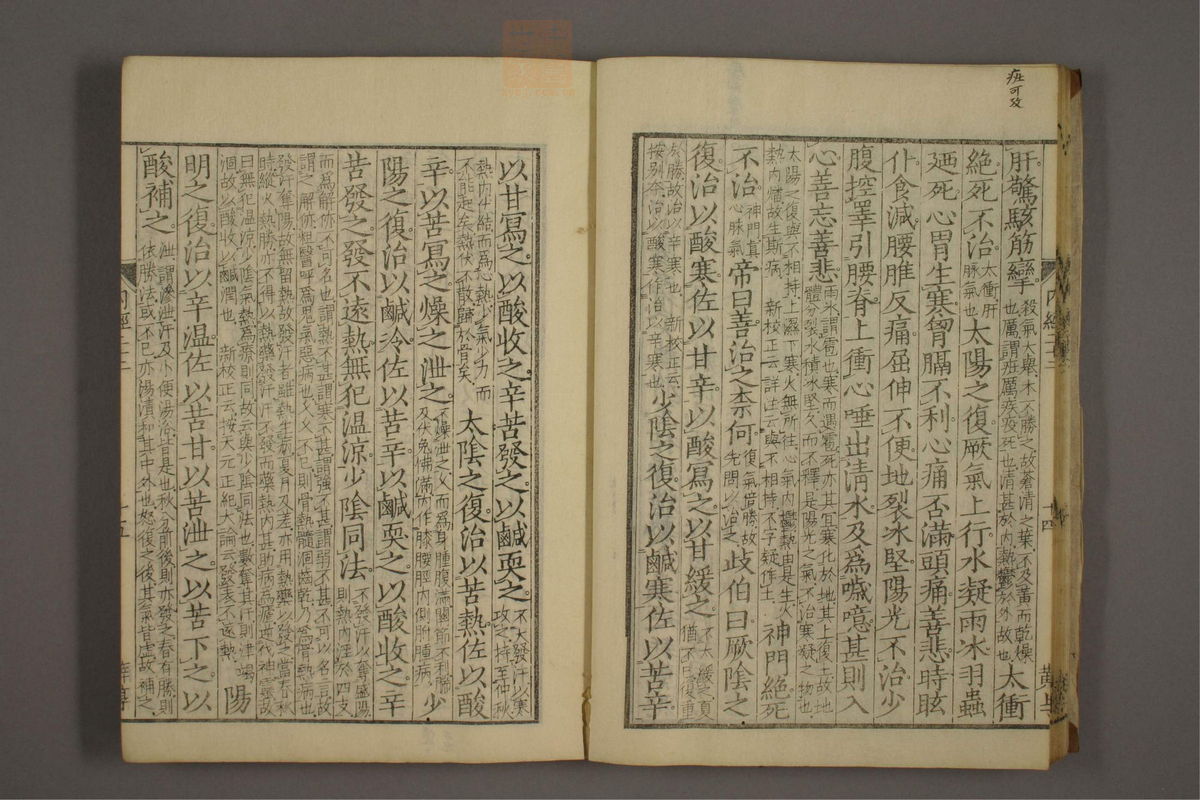 肝驚駭筋攣殺氣大舉木不勝之故蒼清之葉不及黃而乾燥也厲謂疵厲疾疫死也清甚於内熱鬱於外故也太衝
絕死不治太衝肝脉氣也太陽之復厥氣上行水凝雨冰羽蟲
廼死心胃生寒胷膈不利心痛否滿頭痛善悲時眩
仆食減腰脽反痛屈伸不便地裂冰堅陽光不治少
腹控睪引腰脊上衝心唾出清水及爲噦噫甚則入
心善忘善悲雨冰謂雹也寒而遇雹死亦其宜寒化於地其上復土故地體分裂水積冰堅久而不釋是陽光之氣不治寒凝之物也
太陽之復與不相持上濕下寒火無所往心氣内鬱熱由是生火熱内燔故生斯病 新校正云詳注云與不相持不字疑作土神門絕死
不治神門真心脉氣帝曰善治之柰何復氣倍勝故先問以治之歧伯曰厥陰之
復治以酸寒佐以甘辛以酸寫之以甘緩之不大緩之夏猶不已復重
於勝故治以辛寒也 新校正云按別本治以酸寒作治以辛寒也少陰之復治以鹹寒佐以苦辛
以甘寫之以酸收之辛苦發之以鹹耎之不大發汗以寒攻之持至仲秋
熱内伏結而爲心熱少氣少力而不能起矣熱伏不散歸於骨矣太陰之復治以苦熱佐以酸
辛以苦寫之燥之泄之不燥泄之久而爲身腫腹滿關節不利腨及伏兔怫滿内作膝腰脛内側胕腫病少
陽之復治以鹹冷佐以苦辛以鹹耎之以酸收之辛
苦發之發不遠熱無犯温涼少陰同法不發汗以奪盛陽則熱内淫於四支
而爲解㑊不可名也謂熱不甚謂寒不甚謂強不甚謂弱不甚不可以名言故謂之解㑊粗醫呼爲鬼氣惡病也久久不已則骨熱髓涸齒乾乃爲骨熱病也
發汗奪陽故無留熱故發汗者雖熱生病夏月及差亦用熱藥以發之當春秋時縱火熱勝亦不得以熱藥發汗汗不發而藥熱内甚助病爲瘧逆伐神靈故
曰無犯温涼少陰氣熱爲療則同故云與少陰同法也數奪其汗則津竭涸故以酸收以鹹潤也 新校正云按六元正紀大論云發表不遠熱陽
明之復治以辛温佐以苦甘以苦泄之以苦下之以
酸補之泄謂滲泄汗及小便湯浴皆是也秋分前後則亦發之春有勝則依勝法或不已亦湯漬和其中外也怒復之後其氣皆虛故補之